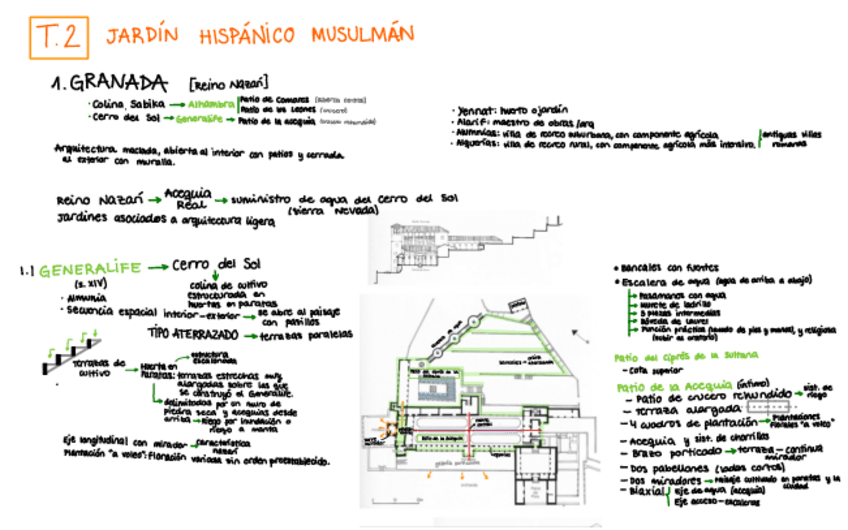 T.2 JARDÍN HISPÁNICO MUSULMÁN
1. GRANADA [Reino Nazarí]
· Colina Sabika → Alhambra
Patio de Comares
Patio de los Leones
· Cerro del Sol → Generalife → Patio de la Acequia
· Yennat: huerto o jardín
· Alarif: maestro de obras/arq
· Almunias: villa de recreo suburbana, con componente agrícola
· Alquerías: villa de recreo rural, con componente agrícola más intensivo.
antiguas villes
romanas
Arquitectura maclada, abierta al interior con patios y cerrada
al exterior con muralla.
Reino Nazarí → Acequia Real → suministro de agua del cerro del Sol
(Sierra Nevada)
Jardines asociados a arquitectura ligera
1.1 GENERALIFE → Cerro del Sol
(s. XIV)
colina de cultivo
estructurada en
huertas en paratas
· Almunia
· Secuencia espacial interior-exterior → se abre al paisaje
con patillos
TIPO ATERRAZADO → terrazas paralelas
terrazas de
cultivo
estructura
escalonada
Huerta en
Paratas: terrazas estrechas muy
alargadas sobre las que
se construyó el Generalife.
delimitadas por un muro de
piedra seca y acequias desde
arriba → Riego por inundación o
riego a manta
Eje longitudinal con mirador → característica
nazarí
Plantación "a voleo": Floración variada sin orden preestablecido.
Patio de la Acequia
• Bancales con fuentes
• Escalera de agua (agua de arriba a abajo)
Pasamanos con agua
Murete de ladrillo
3 mesas intermedias
Bóveda de laurel
Función práctica (lavado de pies y manos), y religiosa
(subir al oratorio)
Patio del ciprés de la sultana
- cota superior
Patio de la Acequia (íntimo)
- Patio de crucero rehundido → sist. de
riego
- Terraza alargada
- 4 cuadros de plantación → Plantaciones
florales "a voleo"
- Acequia y sist. de chorrillos
- Brazo porticado → terraza-continua
mirador
- Dos pabellones (lados cortos)
- Dos miradores → Paisaje cultivado en paratas y la
ciudad
- Biaxial
Eje de agua (acequia)
Eje acceso-escaleras